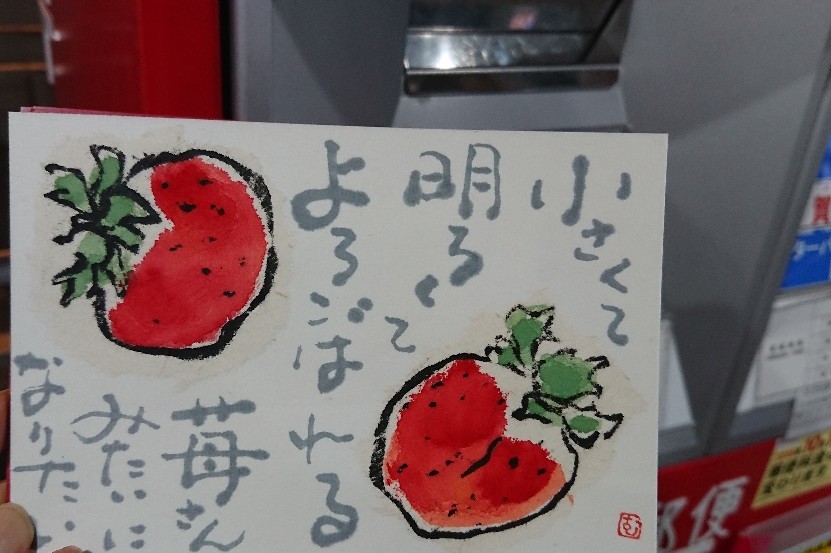 小さくて
明るくて
よろこばれる
苺さん
みたいに
なりたい
郵便